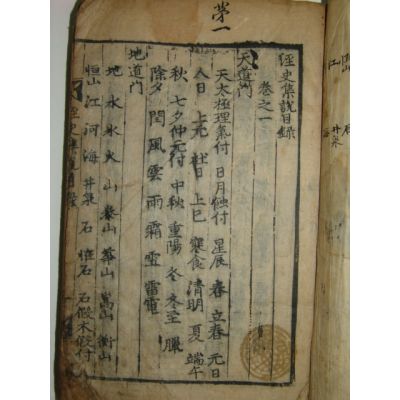 第一
經史集說目錄
卷之一
天道門
天太極理氣付 日月蝕付 星辰 春 立春 元日
人日 上元 社日 上巳 寒食 清明 夏 端午
秋 七夕 仲元付 中秋 重陽 冬 冬至 臘
除夕 閏 風 雲 雨 霜 雪 雷電
地道門
地 水 氷 火 山 泰山 華山 嵩山 衡山
恒山 江 河 海 井泉 石 怪石 石假木假付